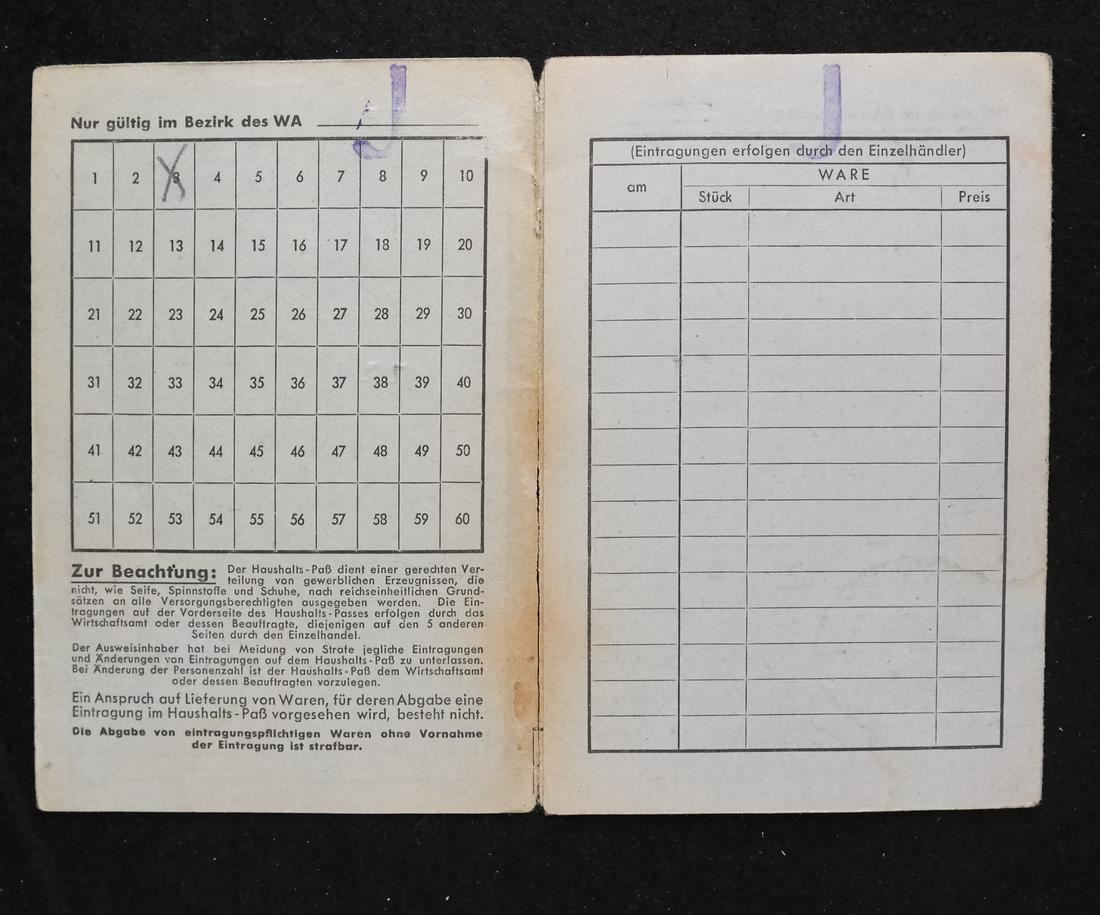 Nur gültig im Bezirk des WA
J
1 2 3 4 5 6 7 8 9 10
11 12 13 14 15 16 17 18 19 20
21 22 23 24 25 26 27 28 29 30
31 32 33 34 35 36 37 38 39 40
41 42 43 44 45 46 47 48 49 50
51 52 53 54 55 56 57 58 59 60
Zur Beachtung: Der Haushalts-Paß dient einer gerechten Ver-
teilung von gewerblichen Erzeugnissen, die
nicht, wie Seife, Spinnstoffe und Schuhe, nach reichseinheitlichen Grund-
sätzen an alle Versorgungsberechtigten ausgegeben werden. Die Ein-
tragungen auf der Vorderseite des Haushalts-Passes erfolgen durch das
Wirtschaftsamt oder dessen Beauftragte, diejenigen auf den 5 anderen
Seiten durch den Einzelhandel.
Der Ausweisinhaber hat bei Meidung von Strafe jegliche Eintragungen
und Änderungen von Eintragungen auf dem Haushalts-Paß zu unterlassen.
Bei Änderung der Personenzahl ist der Haushalts-Paß dem Wirtschaftsamt
oder dessen Beauftragten vorzulegen.
Ein Anspruch auf Lieferung von Waren, für deren Abgabe eine
Eintragung im Haushalts-Paß vorgesehen wird, besteht nicht.
Die Abgabe von eintragungspflichtigen Waren ohne Vornahme
der Eintragung ist strafbar.
J
(Eintragungen erfolgen durch den Einzelhändler)
am WARE
Stück Art Preis